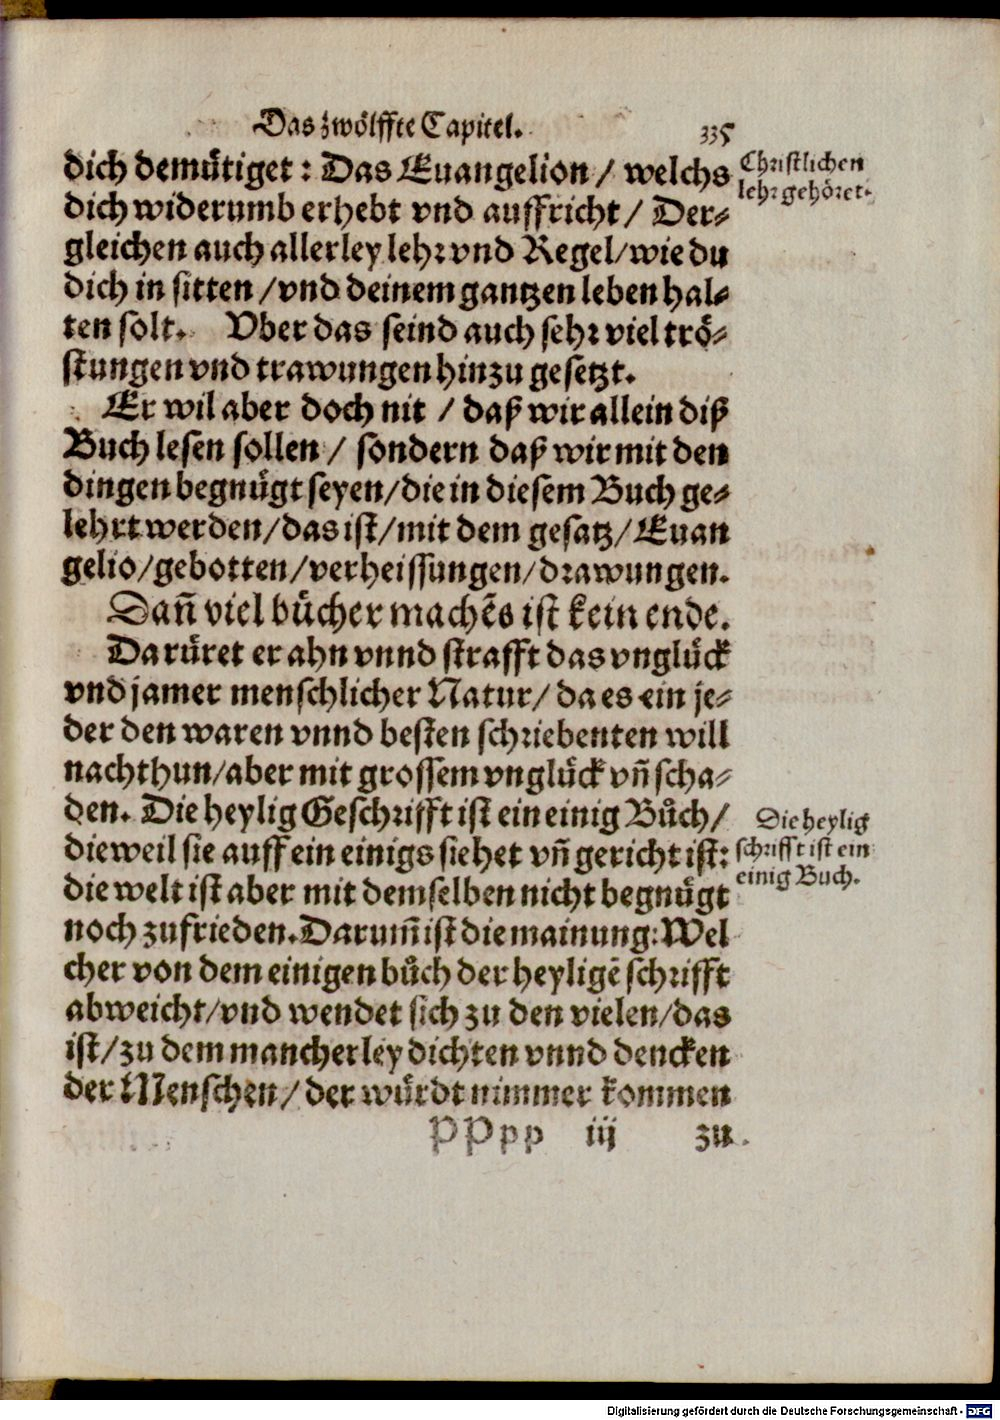 Das zwölffte Capitel. 335
dich demütiget: Das Euangelion / welchs
dich widerumb erhebt vnd auffricht / Der-
gleichen auch allerley lehr vnd Regel / wie du
dich in sitten / vnd deinem gantzen leben hal-
ten solt. Vber das seind auch sehr viel trö-
stungen vnd trawungen hinzu gesetzt.
Er wil aber doch nit / daß wir allein diß
Buch lesen sollen / sondern daß wir mit den
dingen begnügt seyen / die in diesem Buch ge-
lehrt werden / das ist / mit dem gesatz / Euan
gelio / gebotten / verheissungen / drawungen.
Dañ viel bücher machẽs ist kein ende.
Da rüret er ahn vnnd strafft das vnglück
vnd jamer menschlicher Natur / da es ein je-
der den waren vnnd besten schriebenten will
nachthun / aber mit grossem vnglück vñ scha-
den. Die heylig Geschrifft ist ein einig Bůch /
dieweil sie auff ein einigs siehet vñ gericht ist:
die welt ist aber mit demselben nicht begnügt
noch zufrieden. Darum̃ ist die mainung: Wel
cher von dem einigen bůch der heyligẽ schrifft
abweicht / vnd wendet sich zu den vielen / das
ist / zu dem mancherley dichten vnnd dencken
der Menschen / der würdt nimmer kommen
PPpp iij zu
Christlichen
lehr gehöret.
Die heylig
schrifft ist ein
einig Buch.
Digitalisierung gefördert durch die Deutsche Forschungsgemeinschaft - DFG